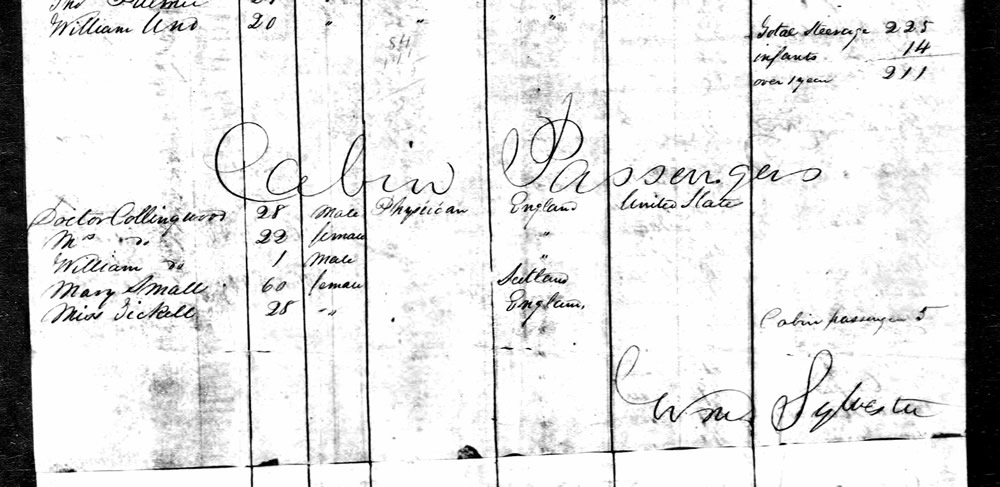 William Und 20 " " "
Total Steerage 225
infants 14
over 1 year 211
Cabin Passengers
Doctor Collingwood 28 Male Physician England United State
Mrs Do 22 female "
William Do 1 Male "
Mary Small 60 female Scotland
Miss Tickell 28 -"- England
Cabin passenger 5
Wm Sylvester